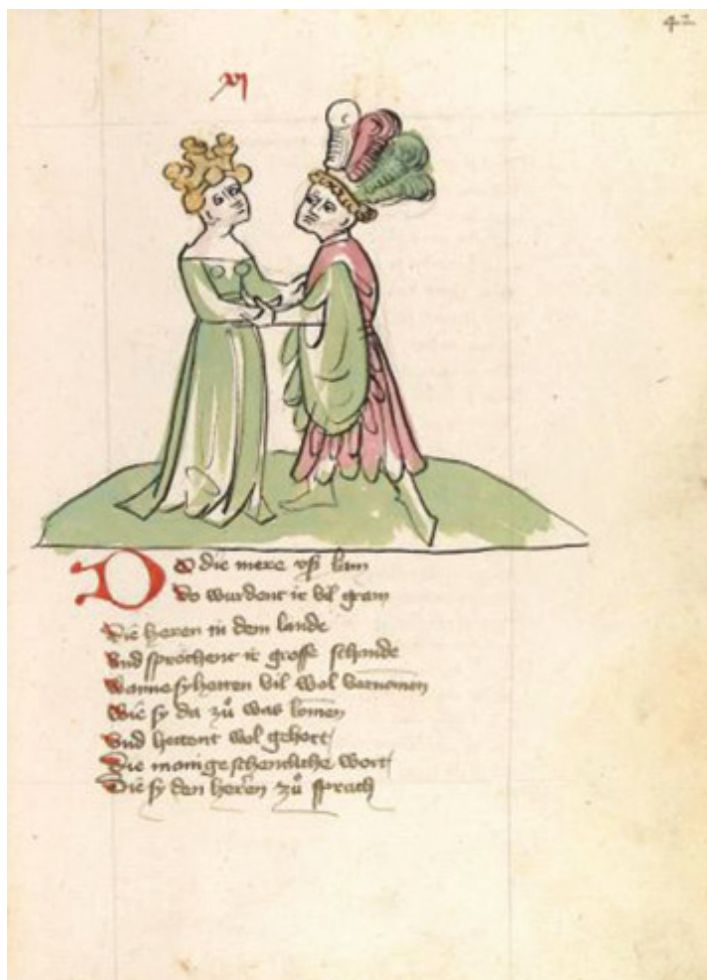 42
vj
Do die mere vß kam
Do wurdent ir vil gram
Die heren in dem lande
Vnd sprochent ir grosse schande
Wanne sy hetten vil wol vernomen
Wie sy da zů was komen
Vnd hettent wol gehort
Die manige schentliche wort
Die sy den heren zů sprach